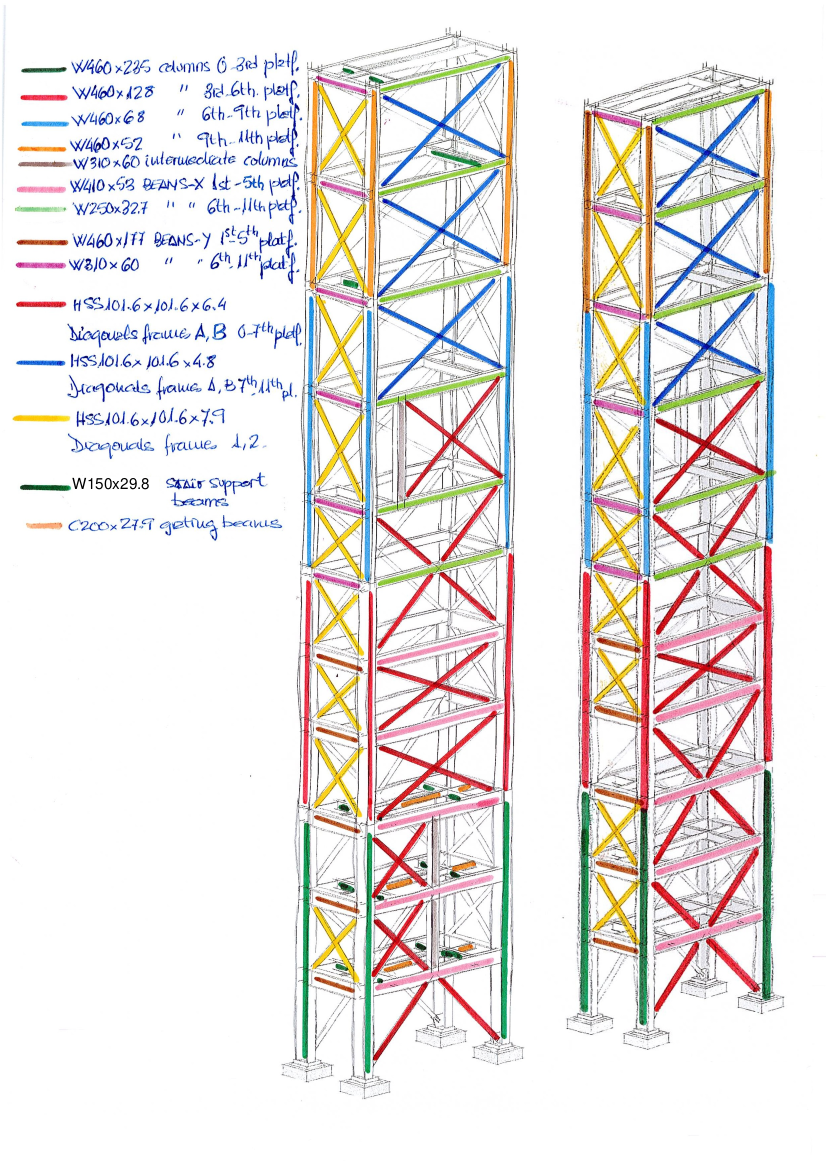 W460x235 columns 0-3rd platf.
W460x128 " 3rd-6th platf.
W460x68 " 6th-9th platf.
W460x52 " 9th-11th platf.
W310x60 intermediate columns
W410x53 BEAMS-X 1st-5th platf.
W250x32.7 " " 6th-11th platf.
W460x177 BEAMS-Y 1st-5th platf.
W310x60 " " 6th-11th platf.
HSS101.6x101.6x6.4
Diagonals frame A,B 0-7th platf.
HSS101.6x101.6x4.8
Diagonals frame A,B 7th-11th pl.
HSS101.6x101.6x7.9
Diagonals frame 1,2.
W150x29.8 stair support
beams
C200x27.9 grating beams